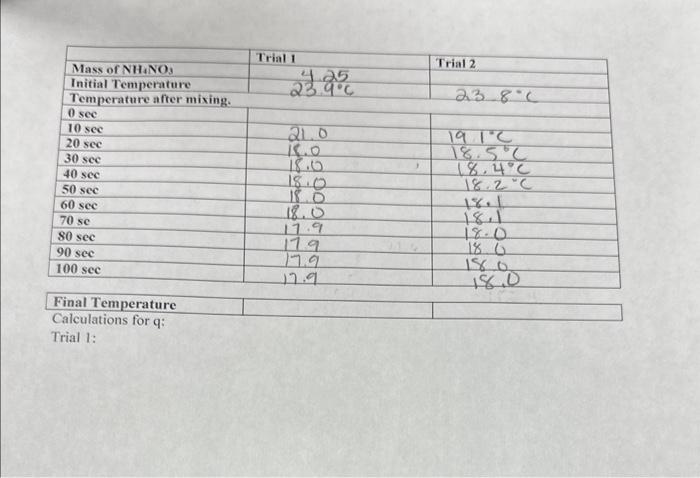 Trial 1 Trial 2
Mass of NH4NO3 4.25
Initial Temperature 23.9°C 23.8°C
Temperature after mixing.
0 sec
10 sec 21.0 19.1°C
20 sec 18.0 18.5°C
30 sec 18.0 18.4°C
40 sec 18.0 18.2°C
50 sec 18.0 18.1
60 sec 18.0 18.1
70 se 17.9 18.0
80 sec 17.9 18.0
90 sec 17.9 18.0
100 sec 17.9 18.0
Final Temperature
Calculations for q:
Trial 1: